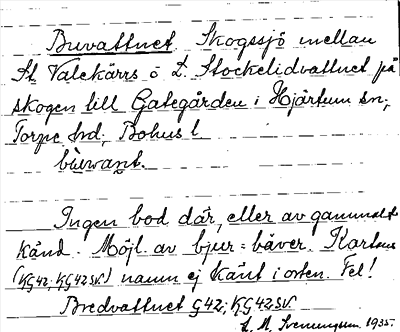 Buvattnet. Skogssjö mellan
St. Valekärrs o L. Stockelidvattnet på
skogen till Gategården i Hjärtum sn,
Torpe hd, Bohus l
bùvvant.
Ingen bod där, eller av gammalt
känd. Möjl. av bjur = bäver. Kartans
(KG42; KG42SV.) namn ej känt i orten. Fel!
Bredvattnet G42; KG42SV.
M. Svenungsson 1935.